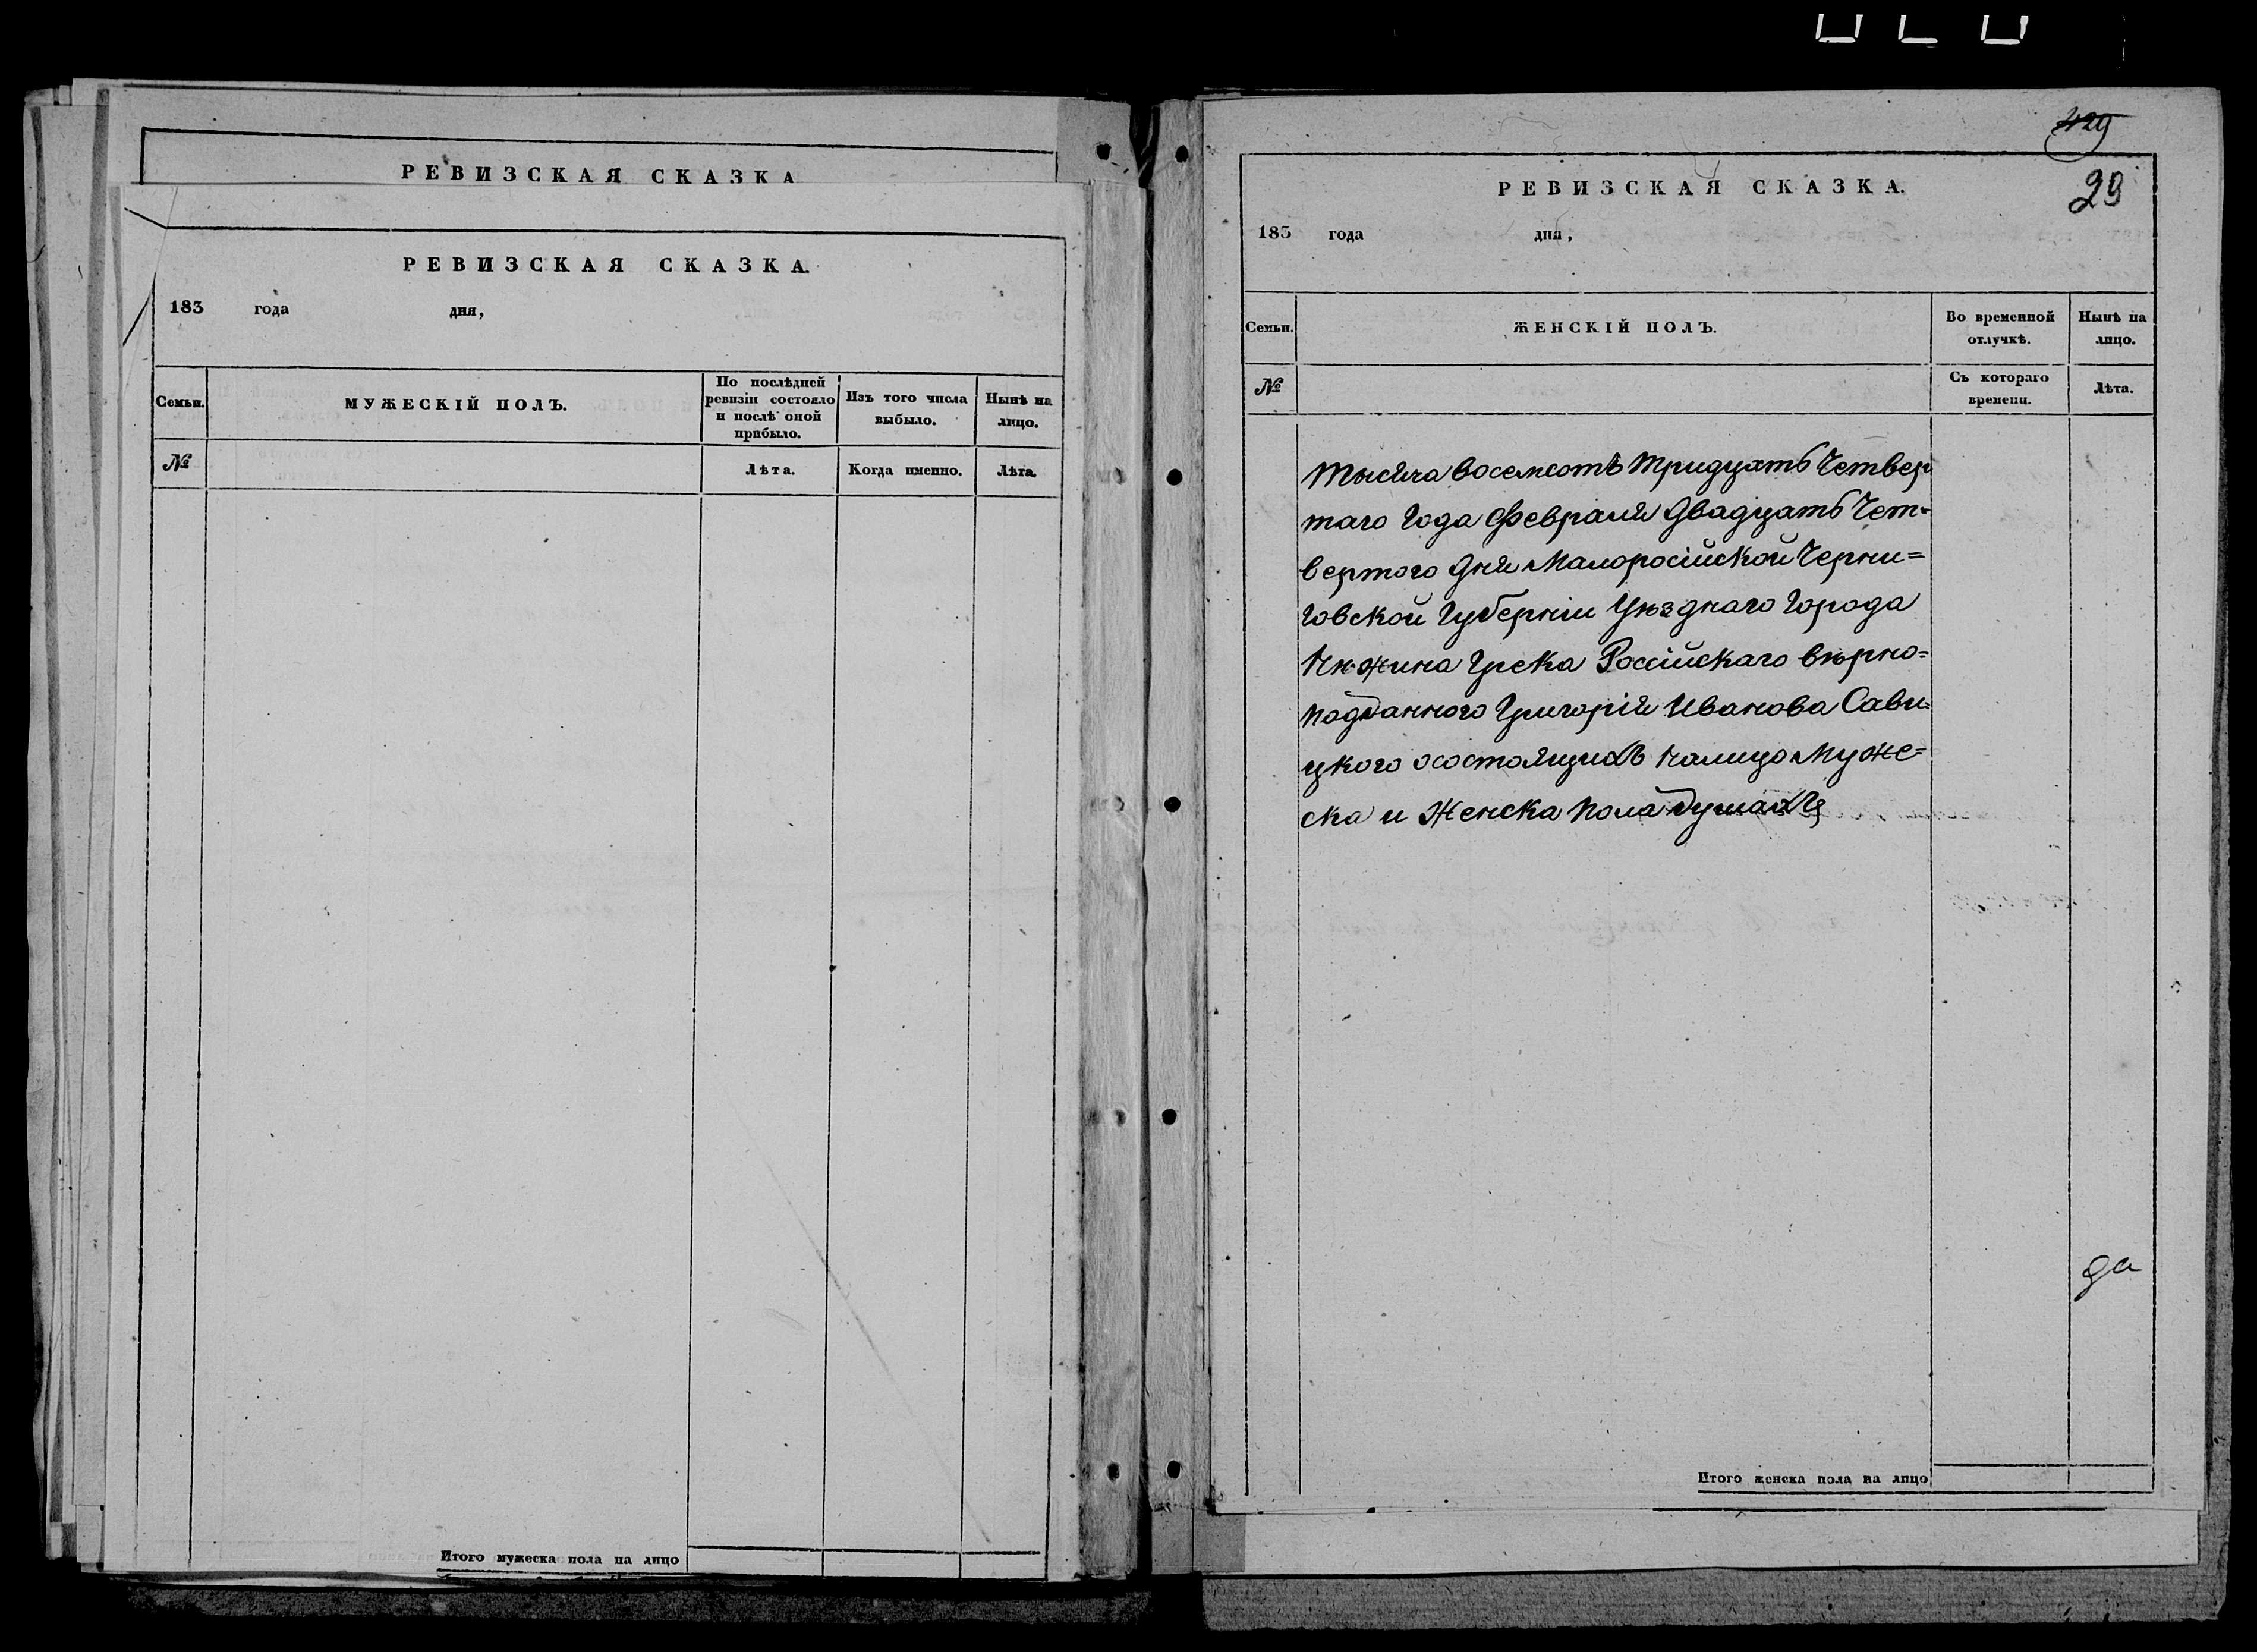 РЕВИЗСКАЯ СКАЗКА
РЕВИЗСКАЯ СКАЗКА.
183 года дня,
Семьи. МУЖЕСКІЙ ПОЛЪ. По послѣдней ревизіи состояло и послѣ оной прибыло. Изъ того числа выбыло. Нынѣ на лицо.
№ Лѣта. Когда именно. Лѣта.
Итого мужеска пола на лицо
429
29
РЕВИЗСКАЯ СКАЗКА.
183 года дня,
Семьи. ЖЕНСКІЙ ПОЛЪ. Во временной отлучкѣ. Нынѣ на лицо.
№ Съ котораго времени. Лѣта.
Тысяча восемсотъ тридцать четвер
таго года февраля двадцать чет-
вертого дня Малоросійской Черни=
говской губерніи уѣзднаго города
Нѣжина грека Россійскаго вѣрно=
подданного Григорія Иванова Сави=
цкого осостоящихъ налицо муже=
ска и женска пола душахъ
да
Итого женска пола на лицо